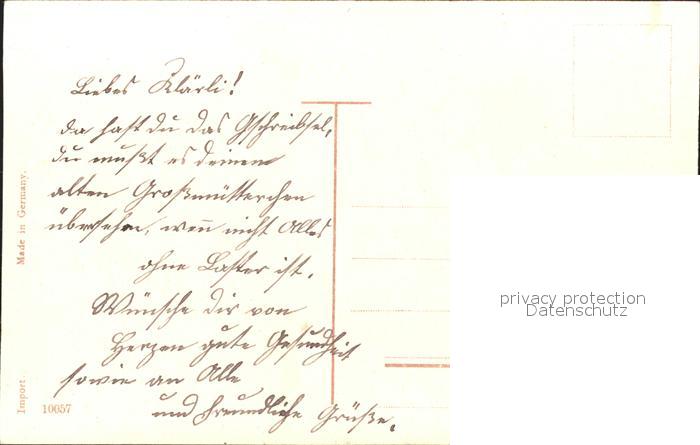 Liebes Klärli!
da hast du das Gschreibsel,
du mußt es deinem
alten Großmütterchen
übersehen, wen̄ nicht Alles
ohne Laster ist.
Wünsche dir von
Herzen gute Gesundheit
sowie an Alle
und freundliche Grüße.
Made in Germany.
Import.
10057
privacy protection
Datenschutz